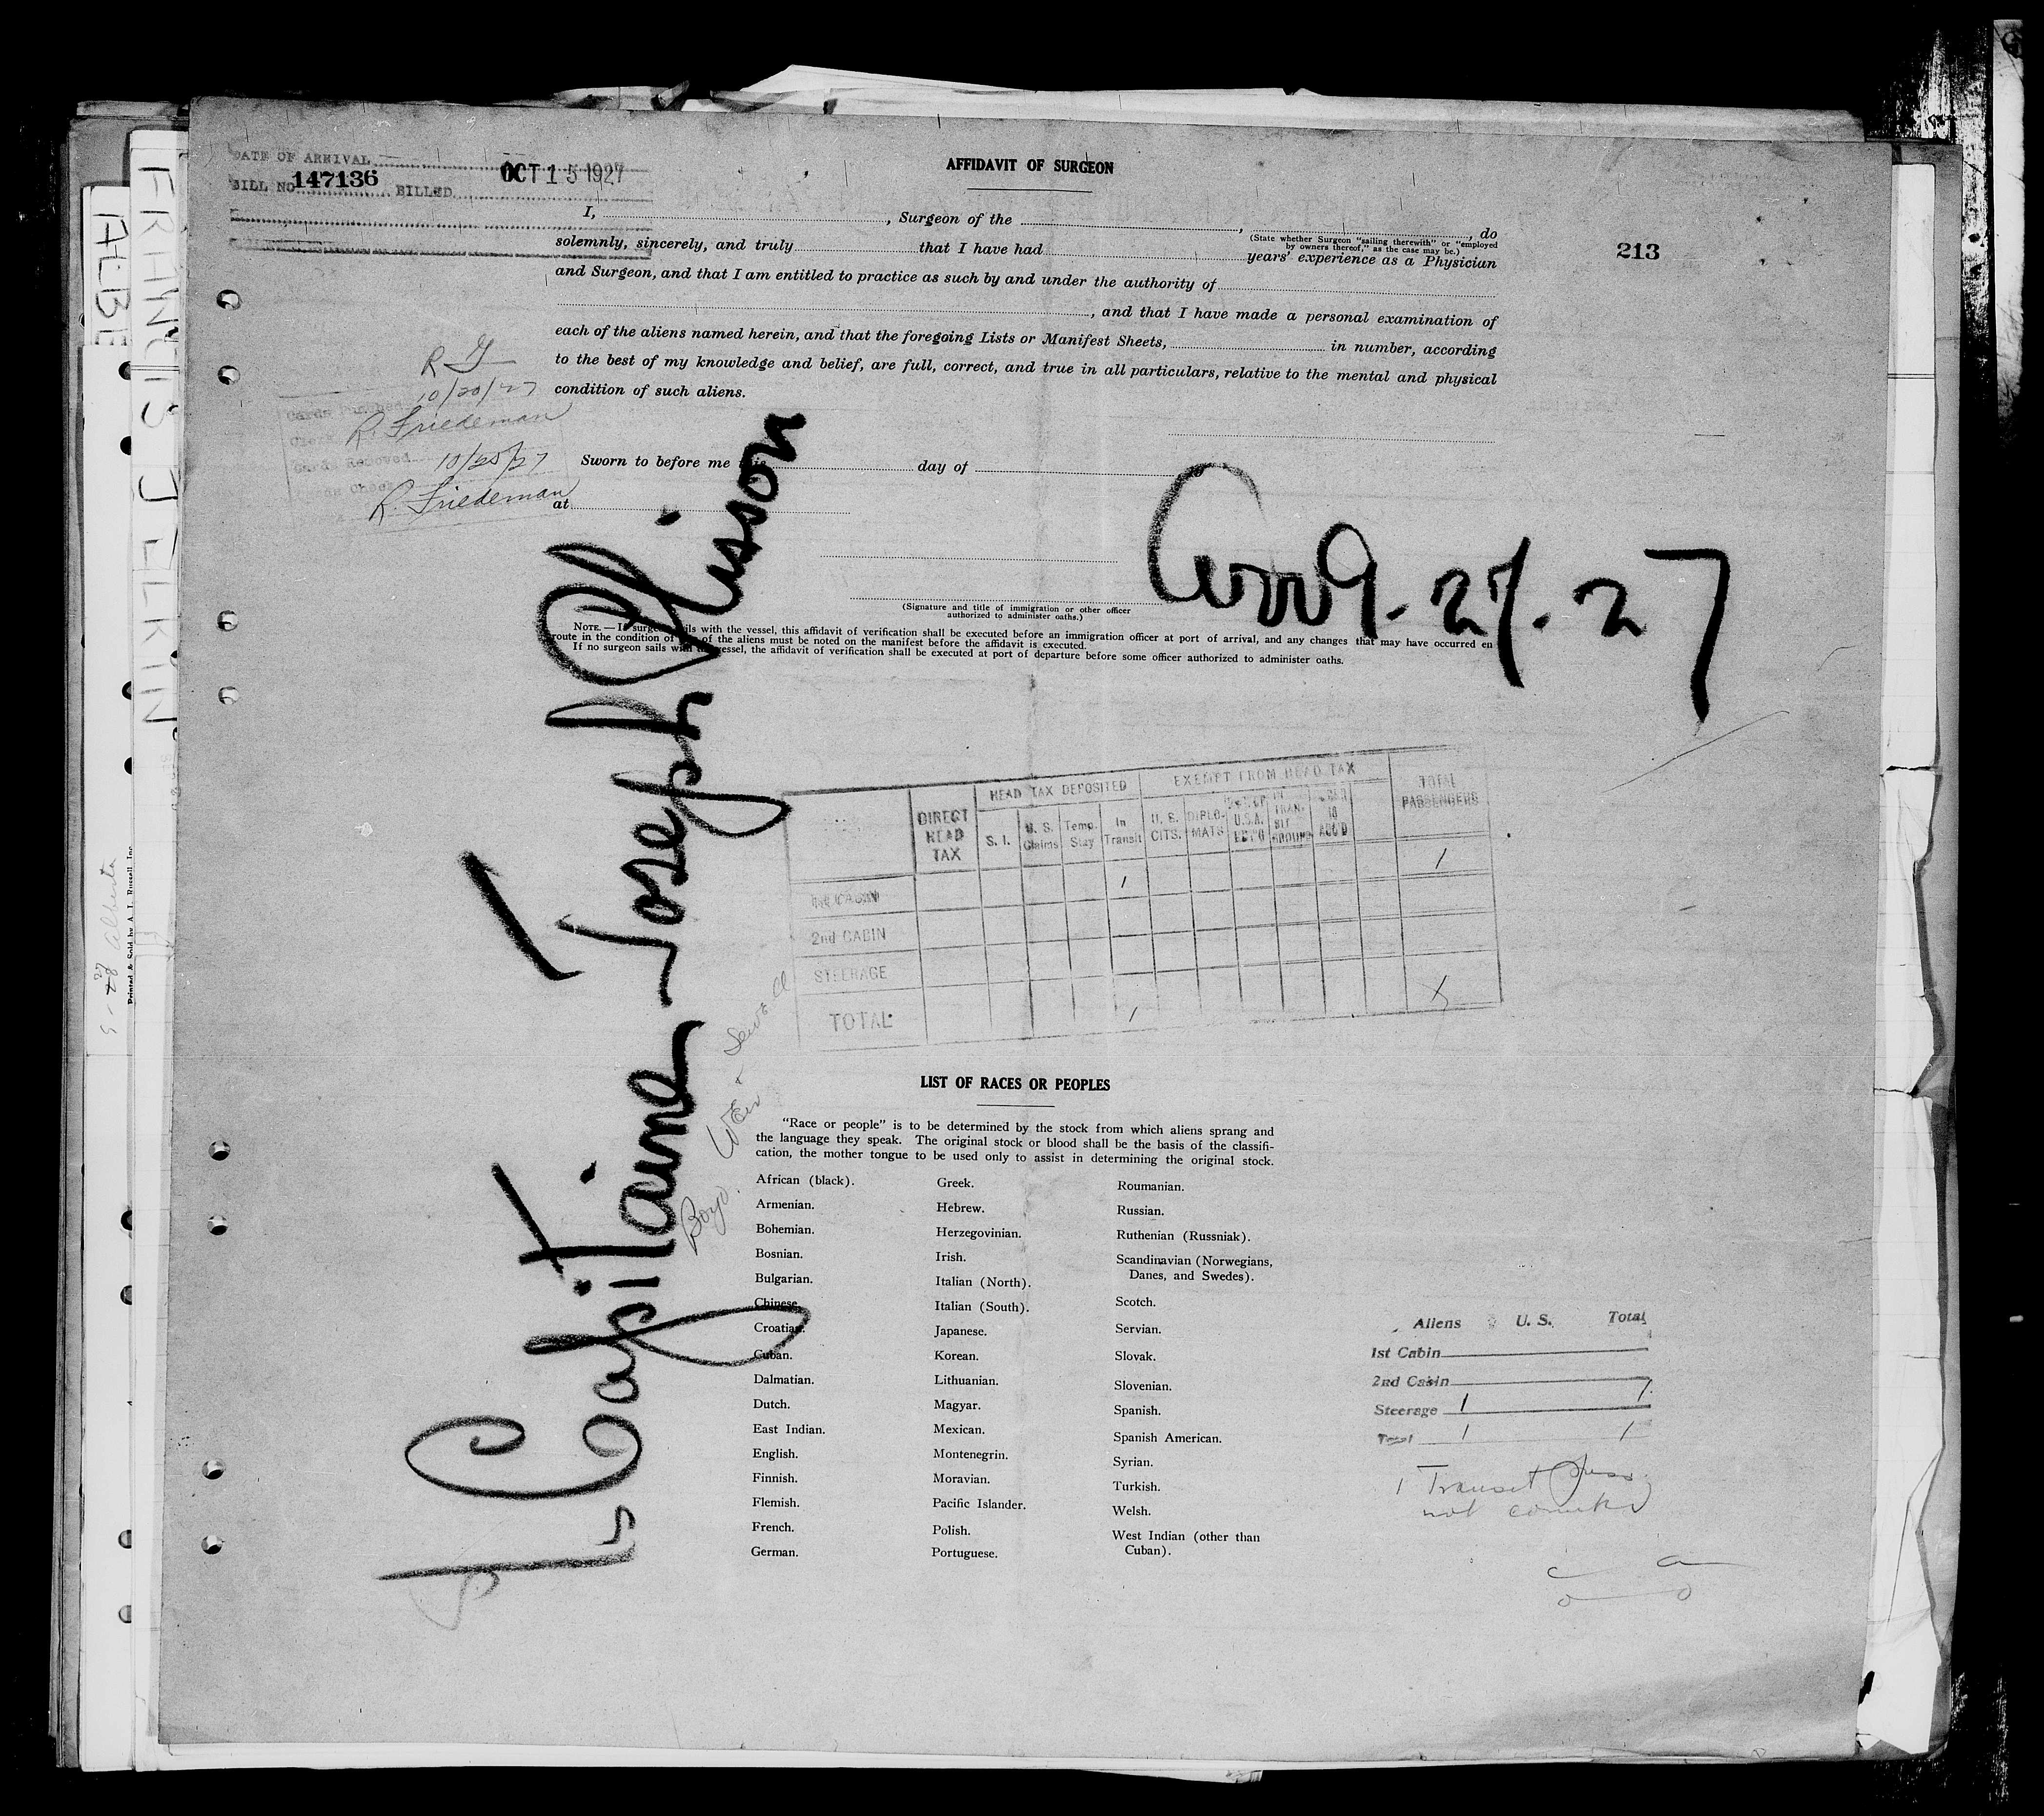 DATE OF ARRIVAL
OCT 15 1927
BILL NO. 147136 BILLED
AFFIDAVIT OF SURGEON
213
I, , Surgeon of the , , do
(State whether Surgeon "sailing therewith" or "employed
by owners thereof," as the case may be.)
solemnly, sincerely, and truly that I have had years' experience as a Physician
and Surgeon, and that I am entitled to practice as such by and under the authority of
, and that I have made a personal examination of
each of the aliens named herein, and that the foregoing Lists or Manifest Sheets, in number, according
to the best of my knowledge and belief, are full, correct, and true in all particulars, relative to the mental and physical
condition of such aliens.
10/20/27
Cards Punched
Clerk R. Friedeman
Cards Removed 10/25/27
R. Friedeman
Sworn to before me day of
at
(Signature and title of immigration or other officer
authorized to administer oaths.)
Arr 9-27-27
NOTE.—If surgeon sails with the vessel, this affidavit of verification shall be executed before an immigration officer at port of arrival, and any changes that may have occurred en
route in the condition of any of the aliens must be noted on the manifest before the affidavit is executed.
If no surgeon sails with the vessel, the affidavit of verification shall be executed at port of departure before some officer authorized to administer oaths.
Capitaine Joseph Plisson
Boyd Weir & Sewell
DIRECT HEAD TAX
HEAD TAX DEPOSITED
EXEMPT FROM HEAD TAX
TOTAL PASSENGERS
S. I.
U. S. Claims
Temp. Stay
In Transit
U. S. CITS.
DIPLO-MATS
1 1
2nd CABIN
STEERAGE
TOTAL 1
LIST OF RACES OR PEOPLES
"Race or people" is to be determined by the stock from which aliens sprang and
the language they speak. The original stock or blood shall be the basis of the classifi-
cation, the mother tongue to be used only to assist in determining the original stock.
African (black).
Armenian.
Bohemian.
Bosnian.
Bulgarian.
Chinese.
Croatian.
Cuban.
Dalmatian.
Dutch.
East Indian.
English.
Finnish.
Flemish.
French.
German.
Greek.
Hebrew.
Herzegovinian.
Irish.
Italian (North).
Italian (South).
Japanese.
Korean.
Lithuanian.
Magyar.
Mexican.
Montenegrin.
Moravian.
Pacific Islander.
Polish.
Portuguese.
Roumanian.
Russian.
Ruthenian (Russniak).
Scandinavian (Norwegians,
Danes, and Swedes).
Scotch.
Servian.
Slovak.
Slovenian.
Spanish.
Spanish American.
Syrian.
Turkish.
Welsh.
West Indian (other than
Cuban).
Aliens U. S. Total
1st Cabin
2nd Cabin
Steerage 1 1
Total 1 1
1 Transit pass.
not counted
FRANCIS J ELKIN
Printed & Sold by A. J. Russell, Inc.